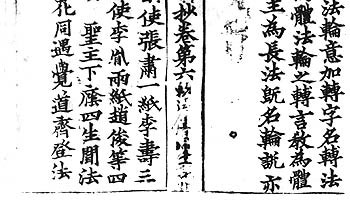 法輪意加轉字名轉法
體法輪之轉言教為體
主為長法既名輪說亦
抄卷第六
使張肅一紙李壽三
使李胤兩紙趙俊等四
聖主下廕四生聞法
花同遇覺道齊登法